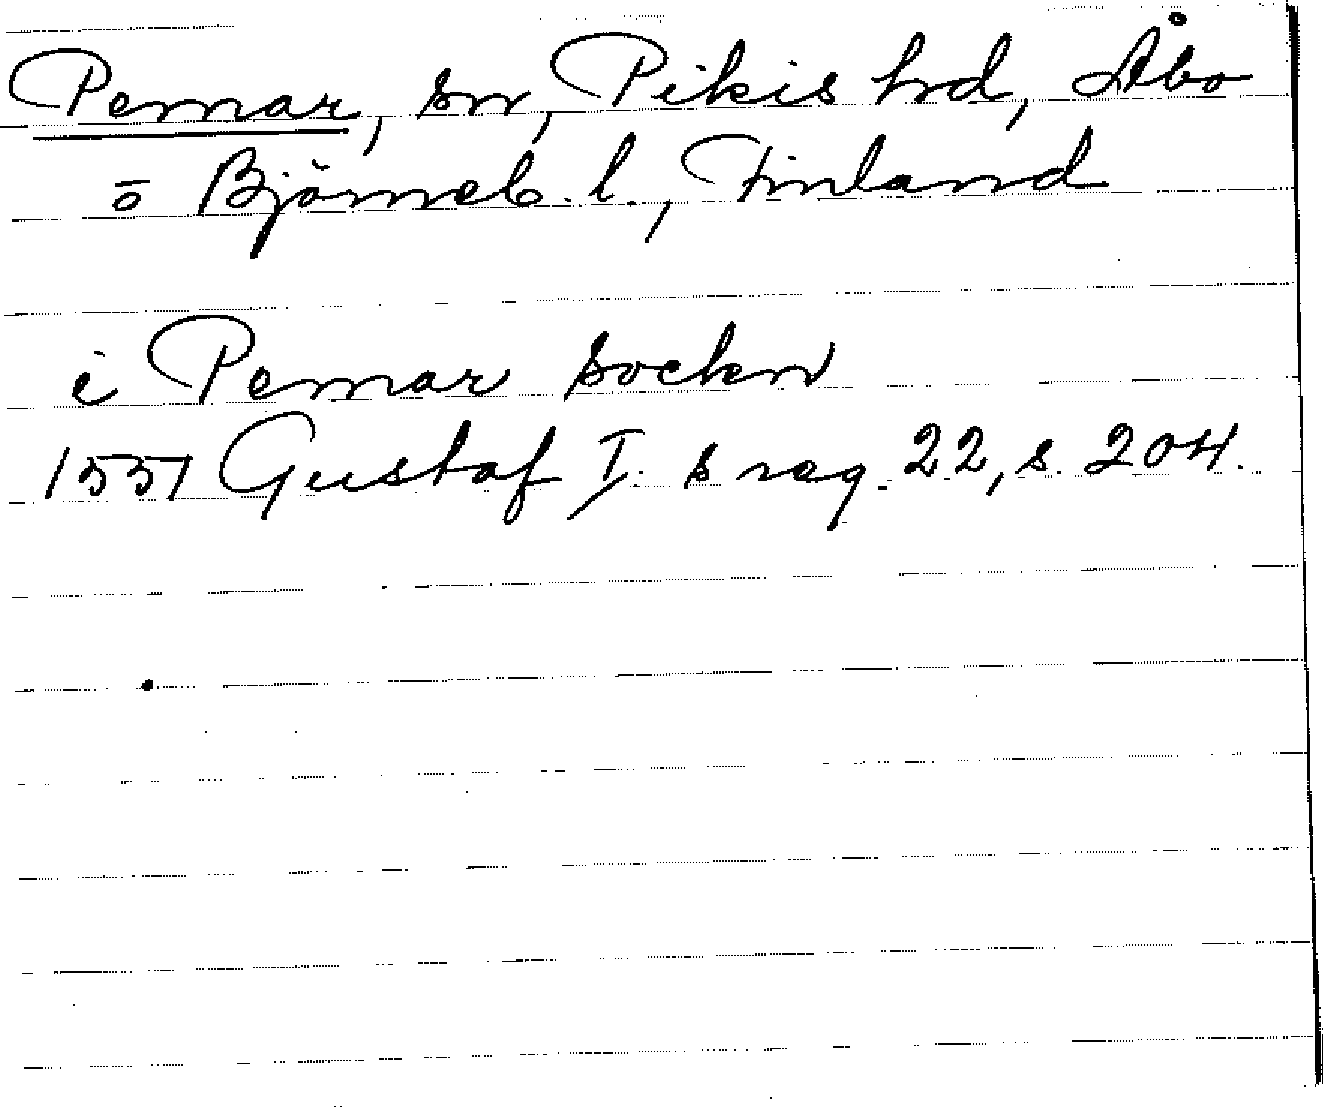 Pemar, sn, Pikis hrd, Åbo
o Björneb. l., Finland
i Pemar sockn
1551 Gustaf I:s reg. 22, s. 204.